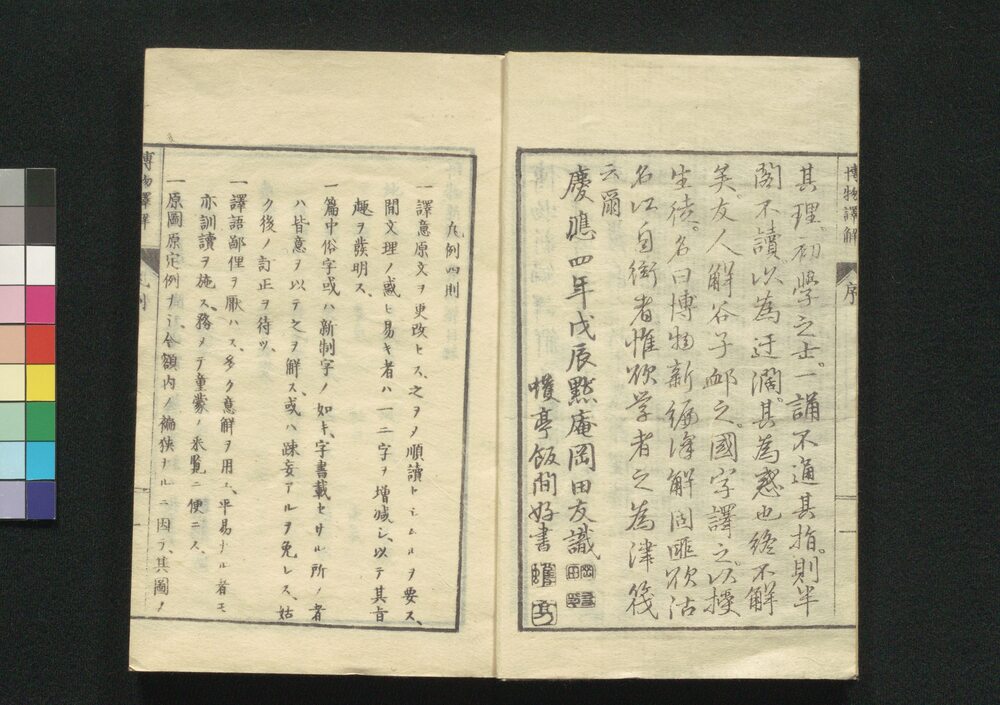 博物譯解
序
其理。初學之士。一誦不通其指。則半
閣不讀。以為迂濶。其為惑也終不解
矣。友人解谷子邮之。國字譯之。以授
生徒。名曰博物新編譯解。固匪欲沽
名江自衒者。惟欲学者之為津筏
云爾
慶應四年戊辰黙庵岡田友識
幞亭飯間好書
凡例四則
一譯意原文ヲ更改セス、之ヲ順讀トシムルヲ要ス、
間文理ノ惑ヒ易キ者ハ一二字ヲ増減シ、以テ其旨
趣ヲ發明ス、
一篇中俗字或ハ新制字ノ如キ、字書載セサル所ノ者
ハ皆意ヲ以テ之ヲ解ス、或ハ踈妄アルヲ免レス、姑
ク後ノ訂正ヲ待ツ、
一譯語鄙俚ヲ厭ハス、多ク意解ヲ用ユ、平易ナル者モ
亦訓讀ヲ施ス、務メテ童蒙ノ釆覧ニ便ニス、
一原圖原定例ナシ、今額内ノ褊狹ナルニ因テ、其圖ノ
博物譯解
凡例